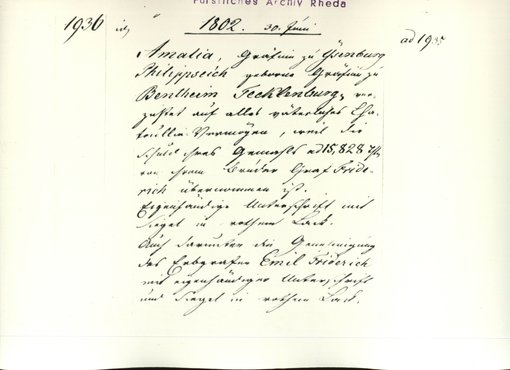 Fürstliches Archiv Rheda
1936
1802. 30. Juni
ad 1935
Amalia, Gräfin zu Ysenburg
Philippseich geborne Gräfin zu
Bentheim Tecklenburg, ver-
zichtet auf alles väterliches &
Vermögen, weil die
Schuld ihres Gemahls ad 15,828
von ihrem Bruder Graf Fride-
rich übernommen ist.
Eigenhändige Unterschrift mit
Siegel in rothem Lack.
Auch darunter die Genehmigung
des Erbgrafen Emil Friderich
mit eigenhändiger Unterschrift
und Siegel in rothem Lack.